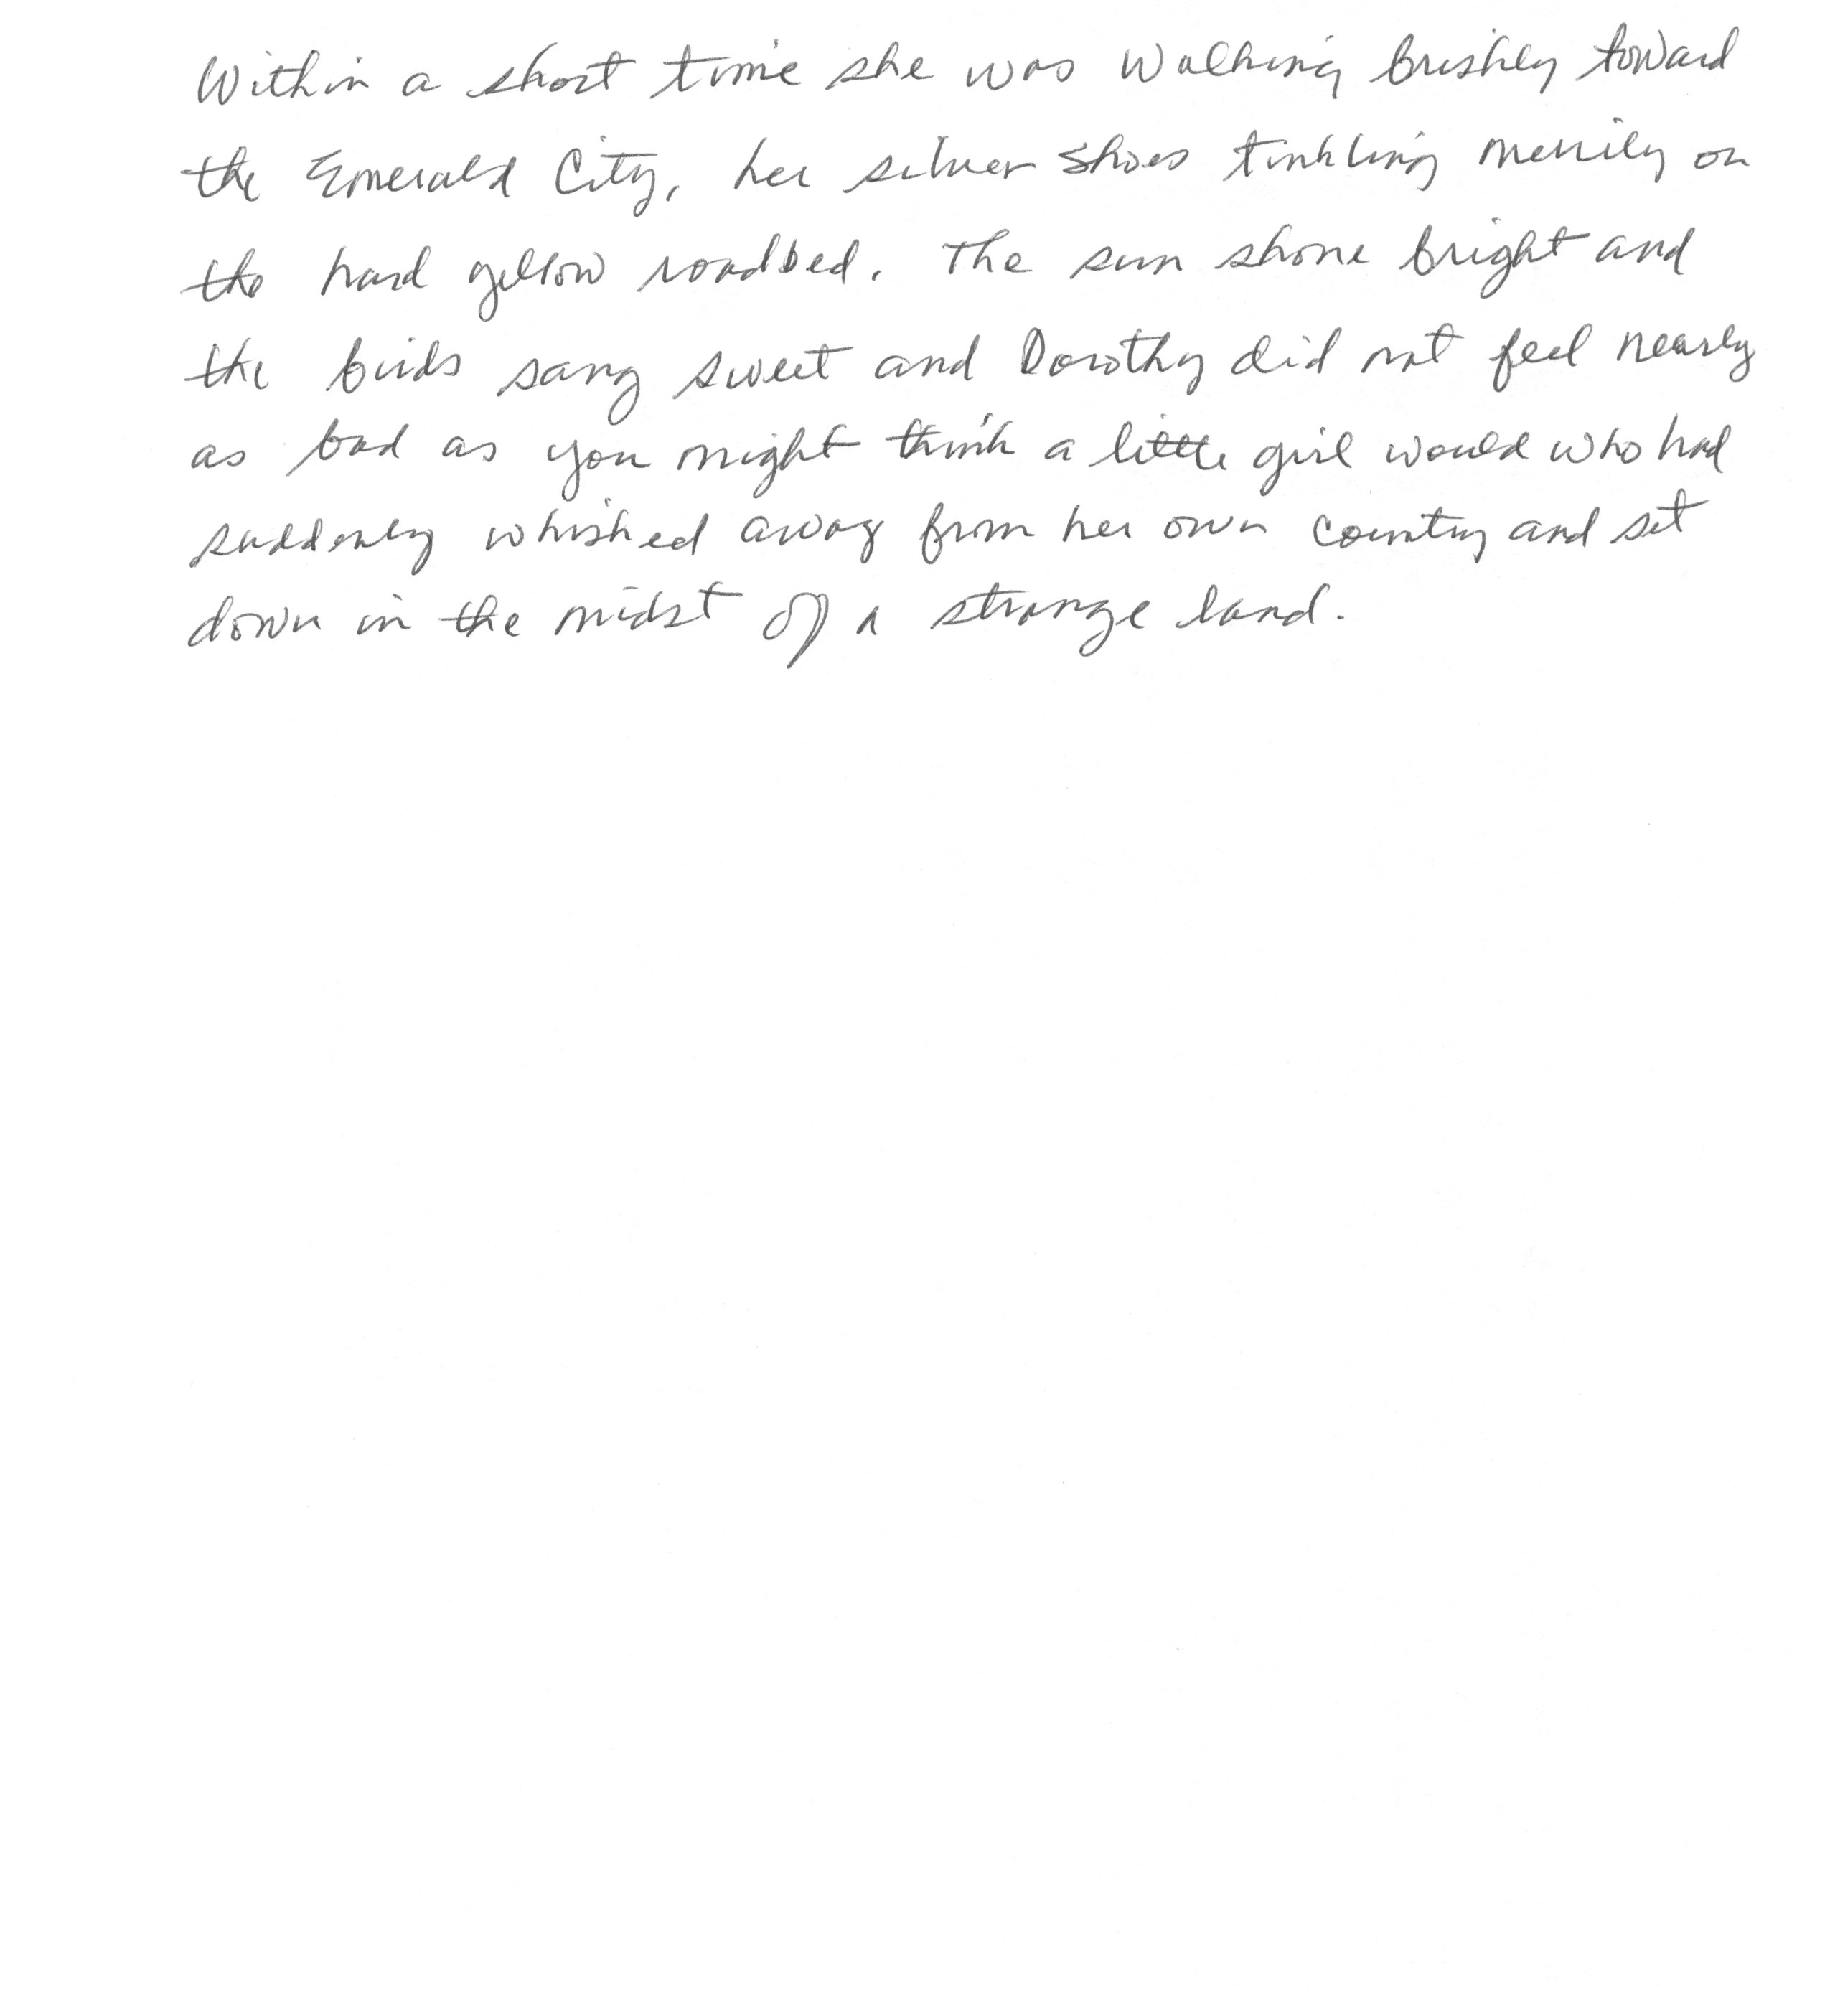 Within a short time she was walking briskly toward
the Emerald City, her silver shoes tinkling merrily on
the hard yellow roadbed. The sun shone bright and
the birds sang sweet and Dorothy did not feel nearly
as bad as you might think a little girl would who had
suddenly whisked away from her own country and set
down in the midst of a strange land.